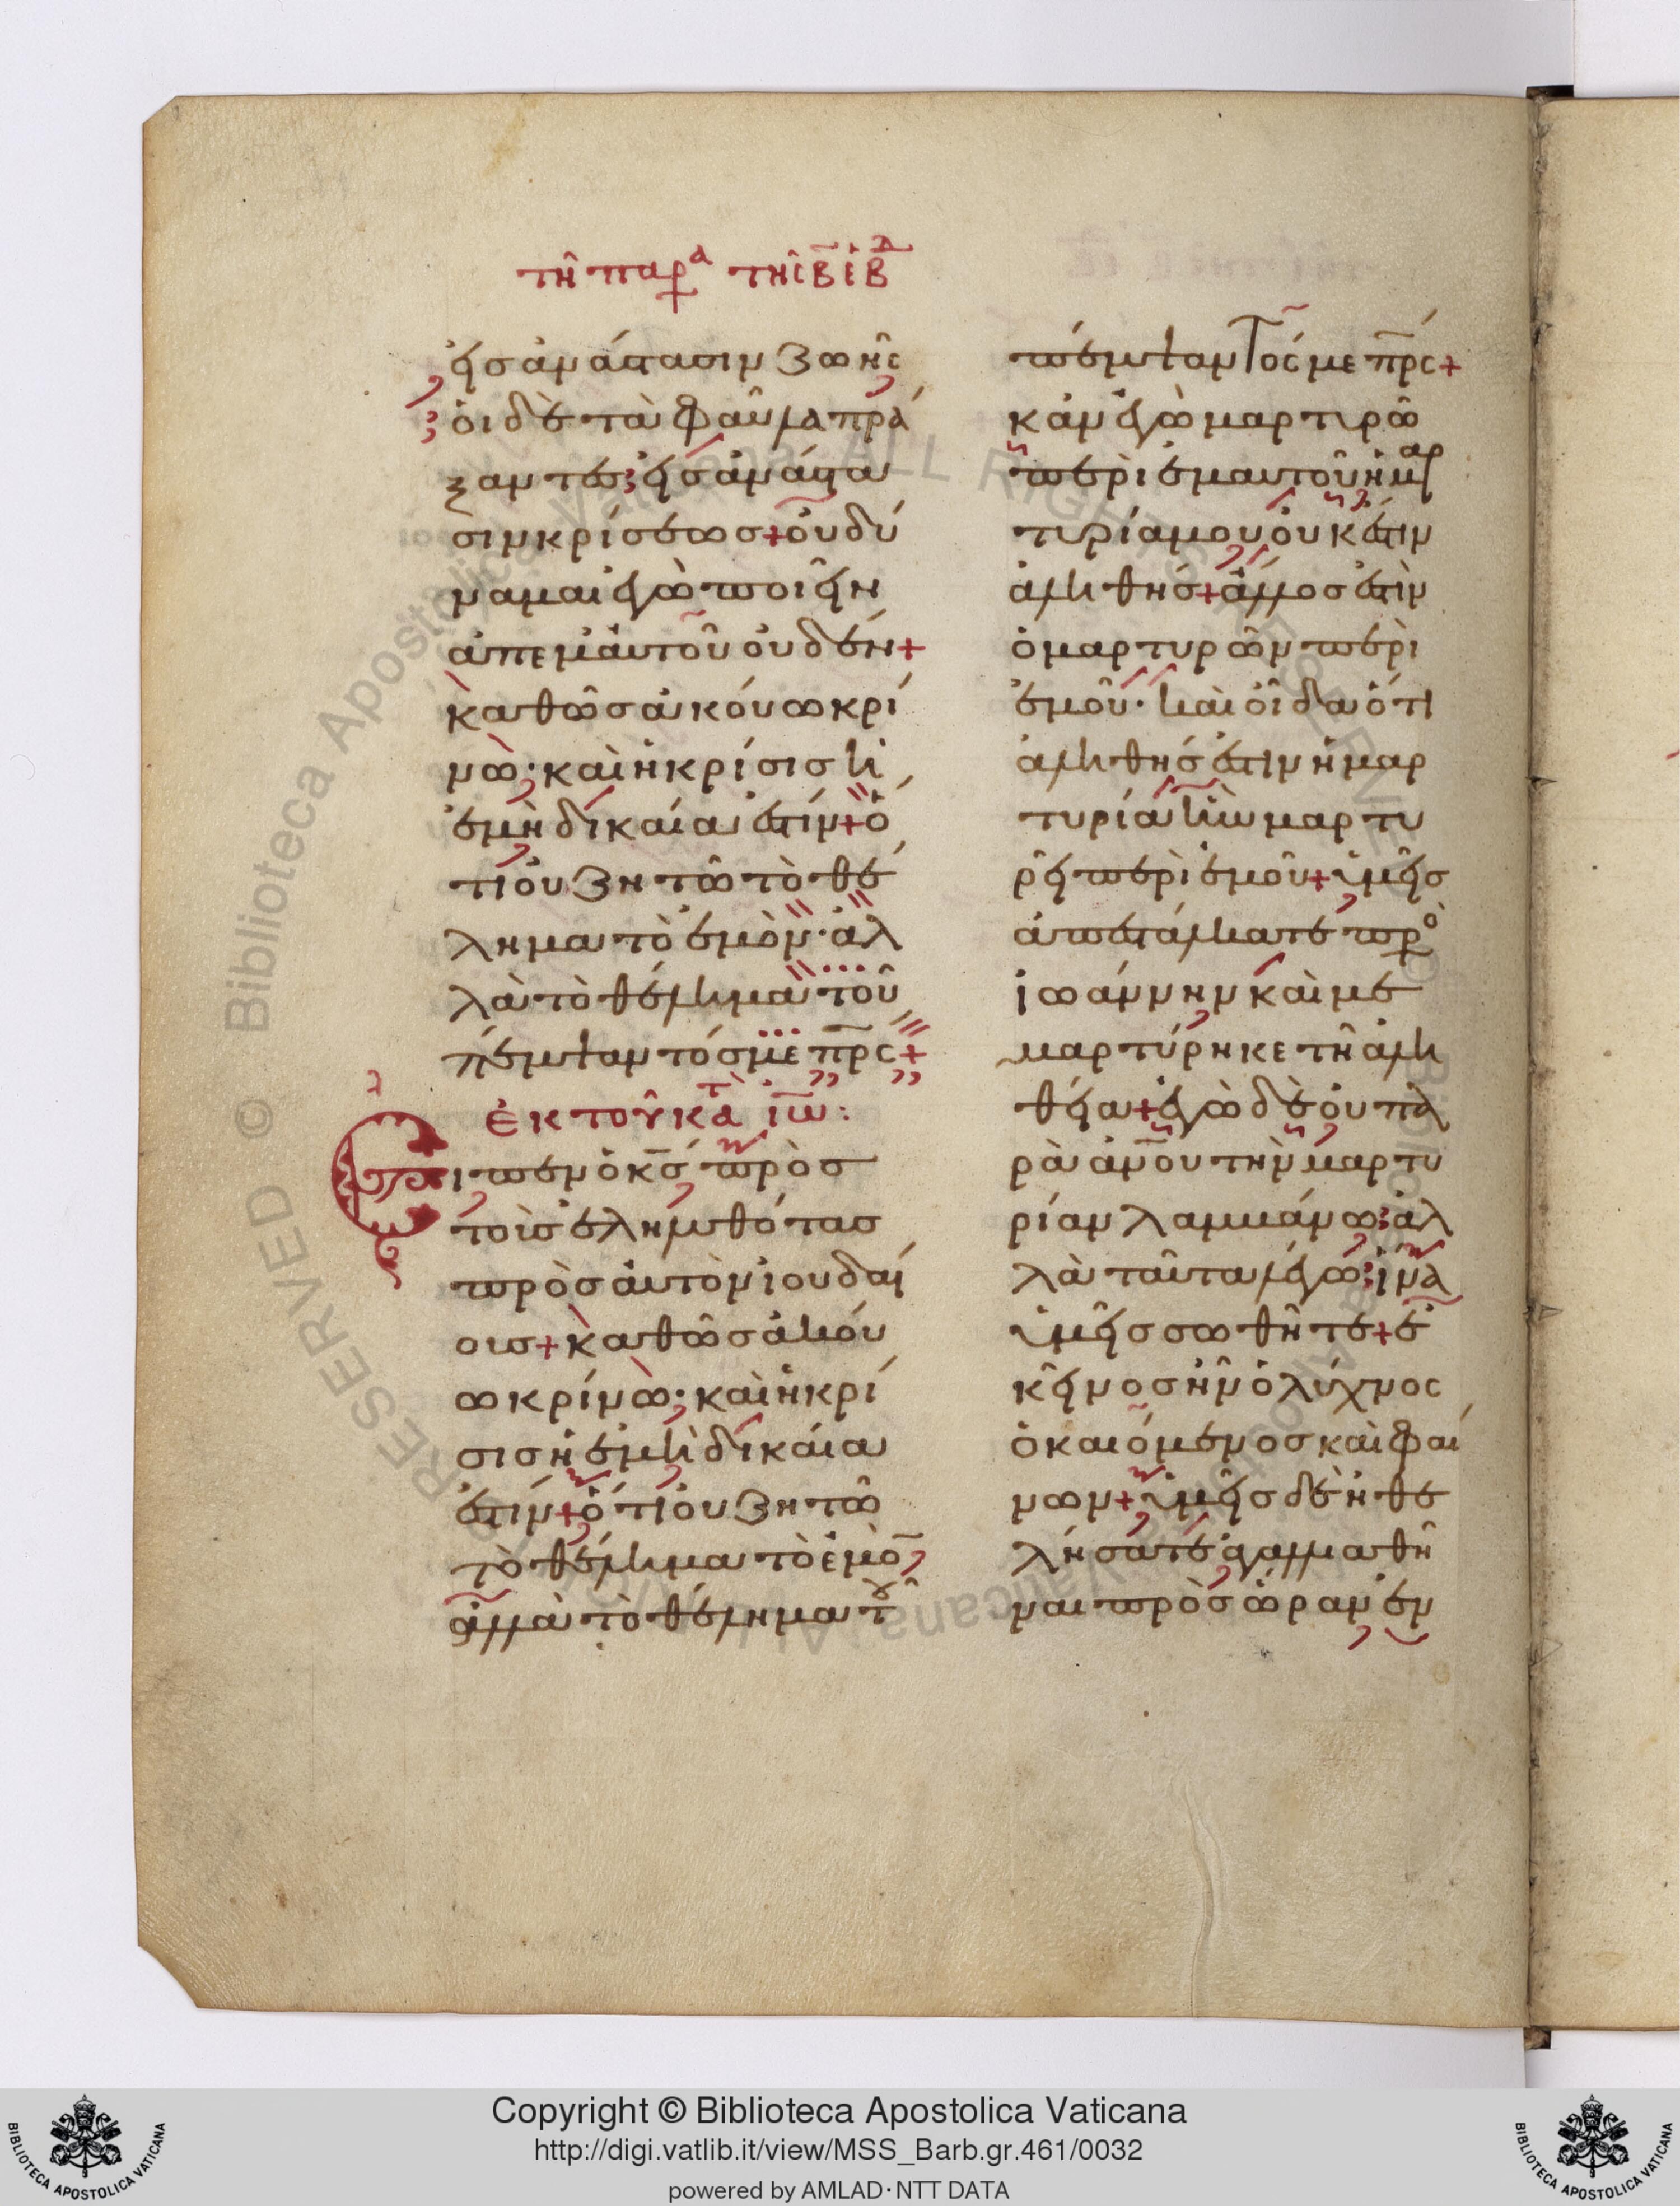 τῆ παρα τῆς βˉ ἑβδ
εἰσ ἀνάστασιν ζωῆς
οἱ δὲ τὰ φαῦλα πρά
ξαντες εἰσ ἀνάστα
σιν κρίσεωσ + οὐ δύ
ναμαι ἐγὼ ποιεῖν
ἀπ' ἐμαυτοῦ οὐδέν +
καθὼσ ἀκούω κρί
νω· καὶ ἡ κρίσισ ἡ
ἐμὴ δικαία ἐστίν + ὅ
τι οὐ ζητῶ τὸ θέ
λημα τὸ ἐμὸν· ἀλ
λὰ τὸ θέλημα τοῦ
πέμψαντόσ με πρς +
ἐκ τοῦ κατὰ ἰω:
Εἶπεν ὁ κσ πρὸσ
τοὺσ ἐληλυθότασ
πρὸσ αὐτὸν ἰουδαί
ουσ + καθὼσ ἀκού
ω κρίνω· καὶ ἡ κρί
σισ ἡ ἐμὴ δικαία
ἐστίν + ὅτι οὐ ζητῶ
τὸ θέλημα τὸ ἐμὸ
ἀλλὰ τὸ θέλημα τοῦ
πέμψαντός με πρς +
κἀν ἐγὼ μαρτυρῶ
περὶ ἐμαυτοῦ ἡ μαρ
τυρία μου οὐκ ἔστιν
ἀληθήσ + ἄλλοσ ἐστὶν
ὁ μαρτυρῶν περὶ
ἐμοῦ· καὶ οἶδα ὅτι
ἀληθήσ ἐστιν ἡ μαρ
τυρία ἣν μαρτυ
ρεῖ περὶ ἐμοῦ + ὑμεῖσ
ἀπεστάλκατε προ
ἰωάννην καὶ με
μαρτύρηκε τῆ ἀλη
θεία + ἐγὼ δὲ οὐ πα
ρὰ ἀνου τὴν μαρτυ
ρίαν λαμβάνω· ἀλ
λὰ ταῦτα λέγω· ἵνα
ὑμεῖσ σωθῆτε + ἐ
κεῖνοσ ἦν ὁ λύχνος
ὁ καιόμενοσ καὶ φαί
νων + ὑμεῖσ δὲ ἠθε
λήσατε ἀγαλλιαθῆ
ναι πρὸσ ὥραν ἐν
Copyright © Biblioteca Apostolica Vaticana
http://digi.vatlib.it/view/MSS_Barb.gr.461/0032
powered by AMLAD·NTT DATA
BIBLIOTECA APOSTOLICA VATICANA
BIBLIOTECA APOSTOLICA VATICANA